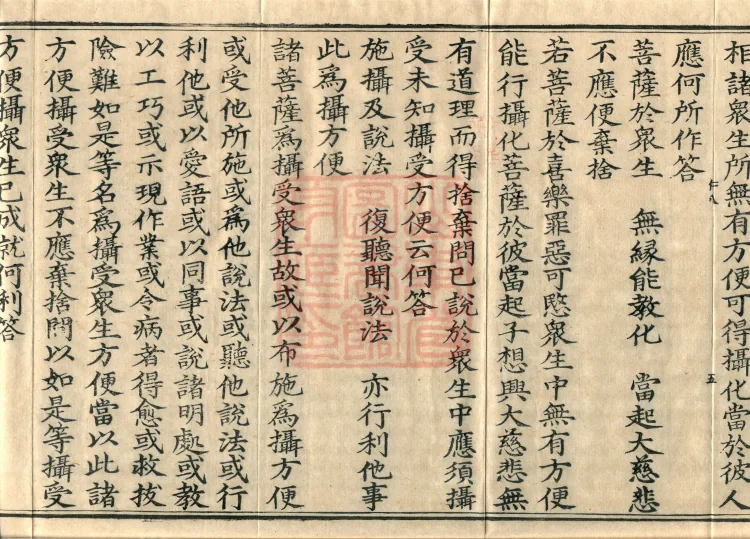 相諸衆生所無有方便可得攝化當於彼人
應何所作答
菩薩於衆生　無縁能教化　當起大慈悲
不應便棄捨
若菩薩於喜樂罪惡可愍衆生中無有方便
能行攝化菩薩於彼當起子想興大慈悲無
有道理而得捨棄問已說於衆生中應須攝
受未知攝受方便云何答
施攝及說法　復聽聞說法　亦行利他事
此爲攝方便
諸菩薩爲攝受衆生故或以布施爲攝方便
或受他所施或爲他說法或聽他說法或行
利他或以愛語或以同事或說諸明處或教
以工巧或示現作業或令病者得愈或救拔
險難如是等名爲攝受衆生方便當以此諸
方便攝受衆生不應棄捨問以如是等攝受
方便攝衆生已成就何利答
五